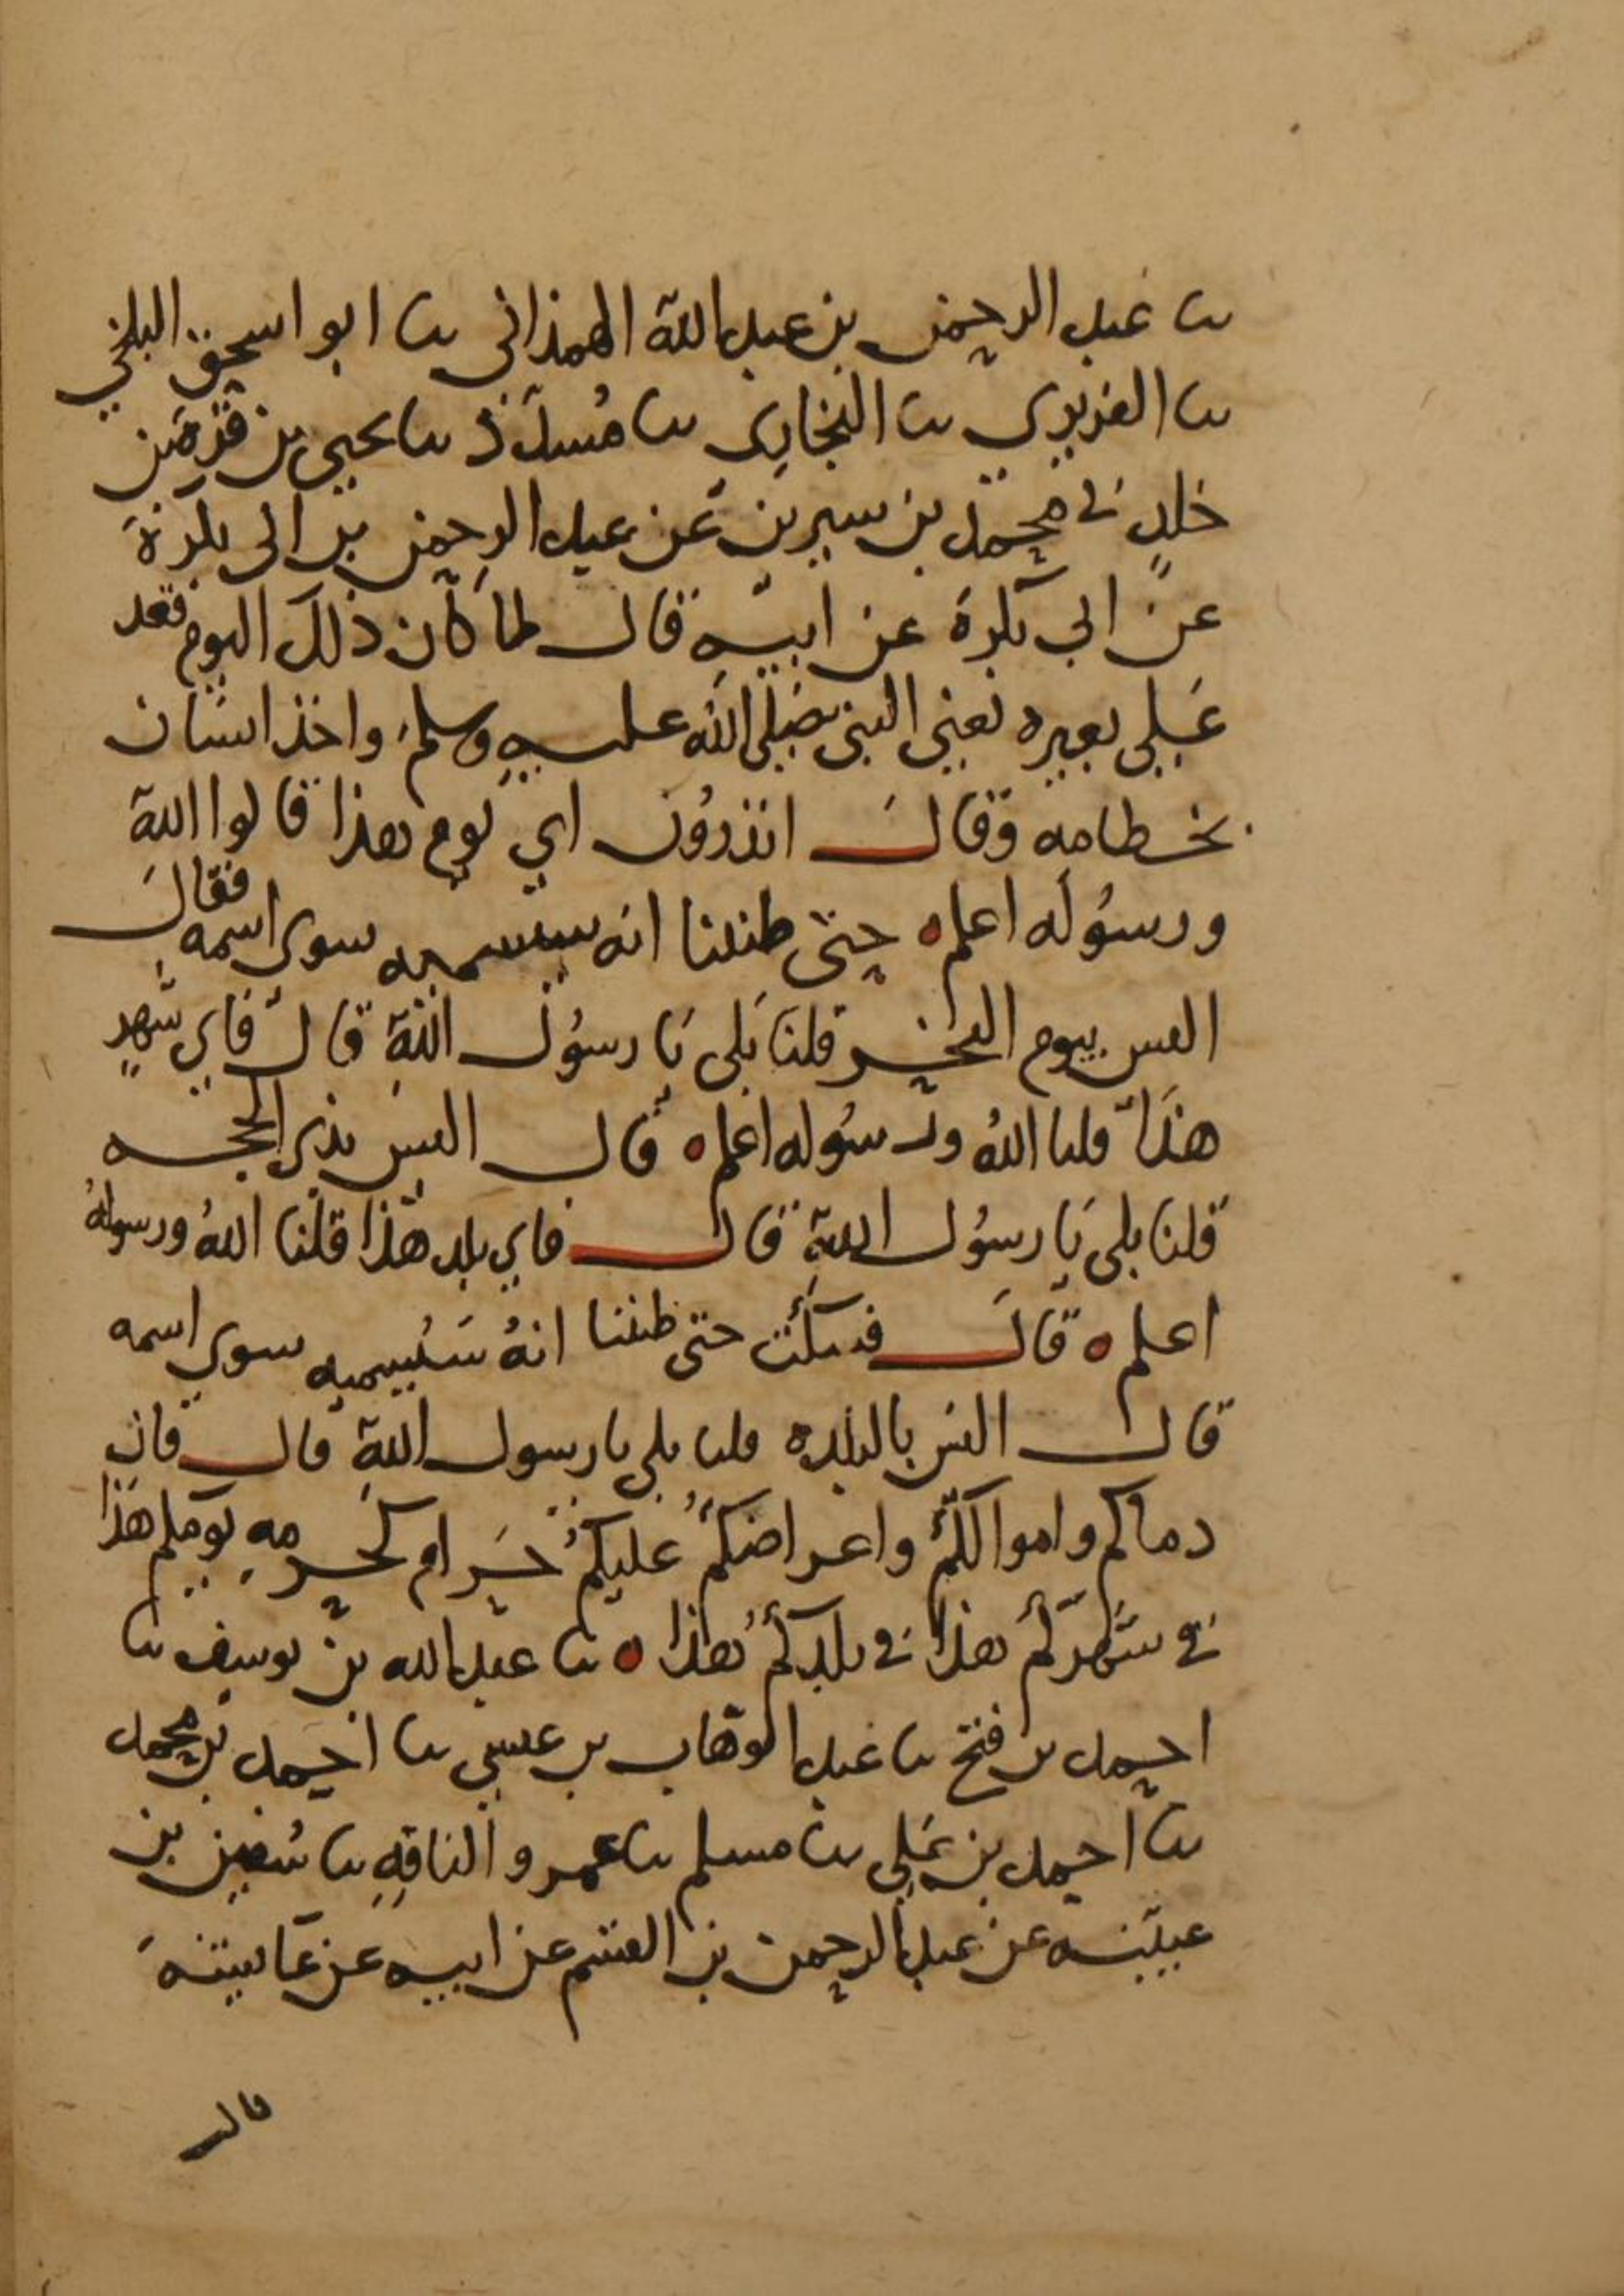 ثنا عبد الرحمن بن عبد الله الهمذاني ثنا ابو اسحق البلخي
ثنا الفربري ثنا البخاري ثنا مسدد ثنا يحيى بن قرة بن
خلد في محمد بن سيرين عن عبد الرحمن بن ابي بكرة
عن ابي بكرة عن ابيه قال لما كان ذلك اليوم فقعد
على بعيره يعني النبي صلى الله عليه وسلم واخذ انسان
بخطامه وقال اتدرون اي يوم هذا قالوا الله
ورسوله اعلم ه حتى ظننا انه سيسميه سوى اسمه فقال
اليس بيوم النحر قلنا بلى يا رسول الله قال فاي شهر
هذا قلنا الله ورسوله اعلم ه قال اليس بذي الحجه
قلنا بلى يا رسول الله قال فاي بلد هذا قلنا الله ورسوله
اعلم ه قال فسكت حتى ظننا انه سيسميه سوى اسمه
قال اليس بالبلده قلنا بلى يا رسول الله قال فان
دماكم واموالكم واعراضكم عليكم حرام كحرمه يومكم هذا
في شهركم هذا في بلدكم هذا ه ثنا عبد الله بن يوسف ثنا
احمد بن فتح ثنا عبد الوهاب بن عيسى ثنا احمد بن محمد
ثنا احمد بن علي ثنا مسلم ثنا عمرو الناقد ثنا سفين بن
عيينه عن عبد الرحمن بن القسم عن ابيه عن عايشه
قالت